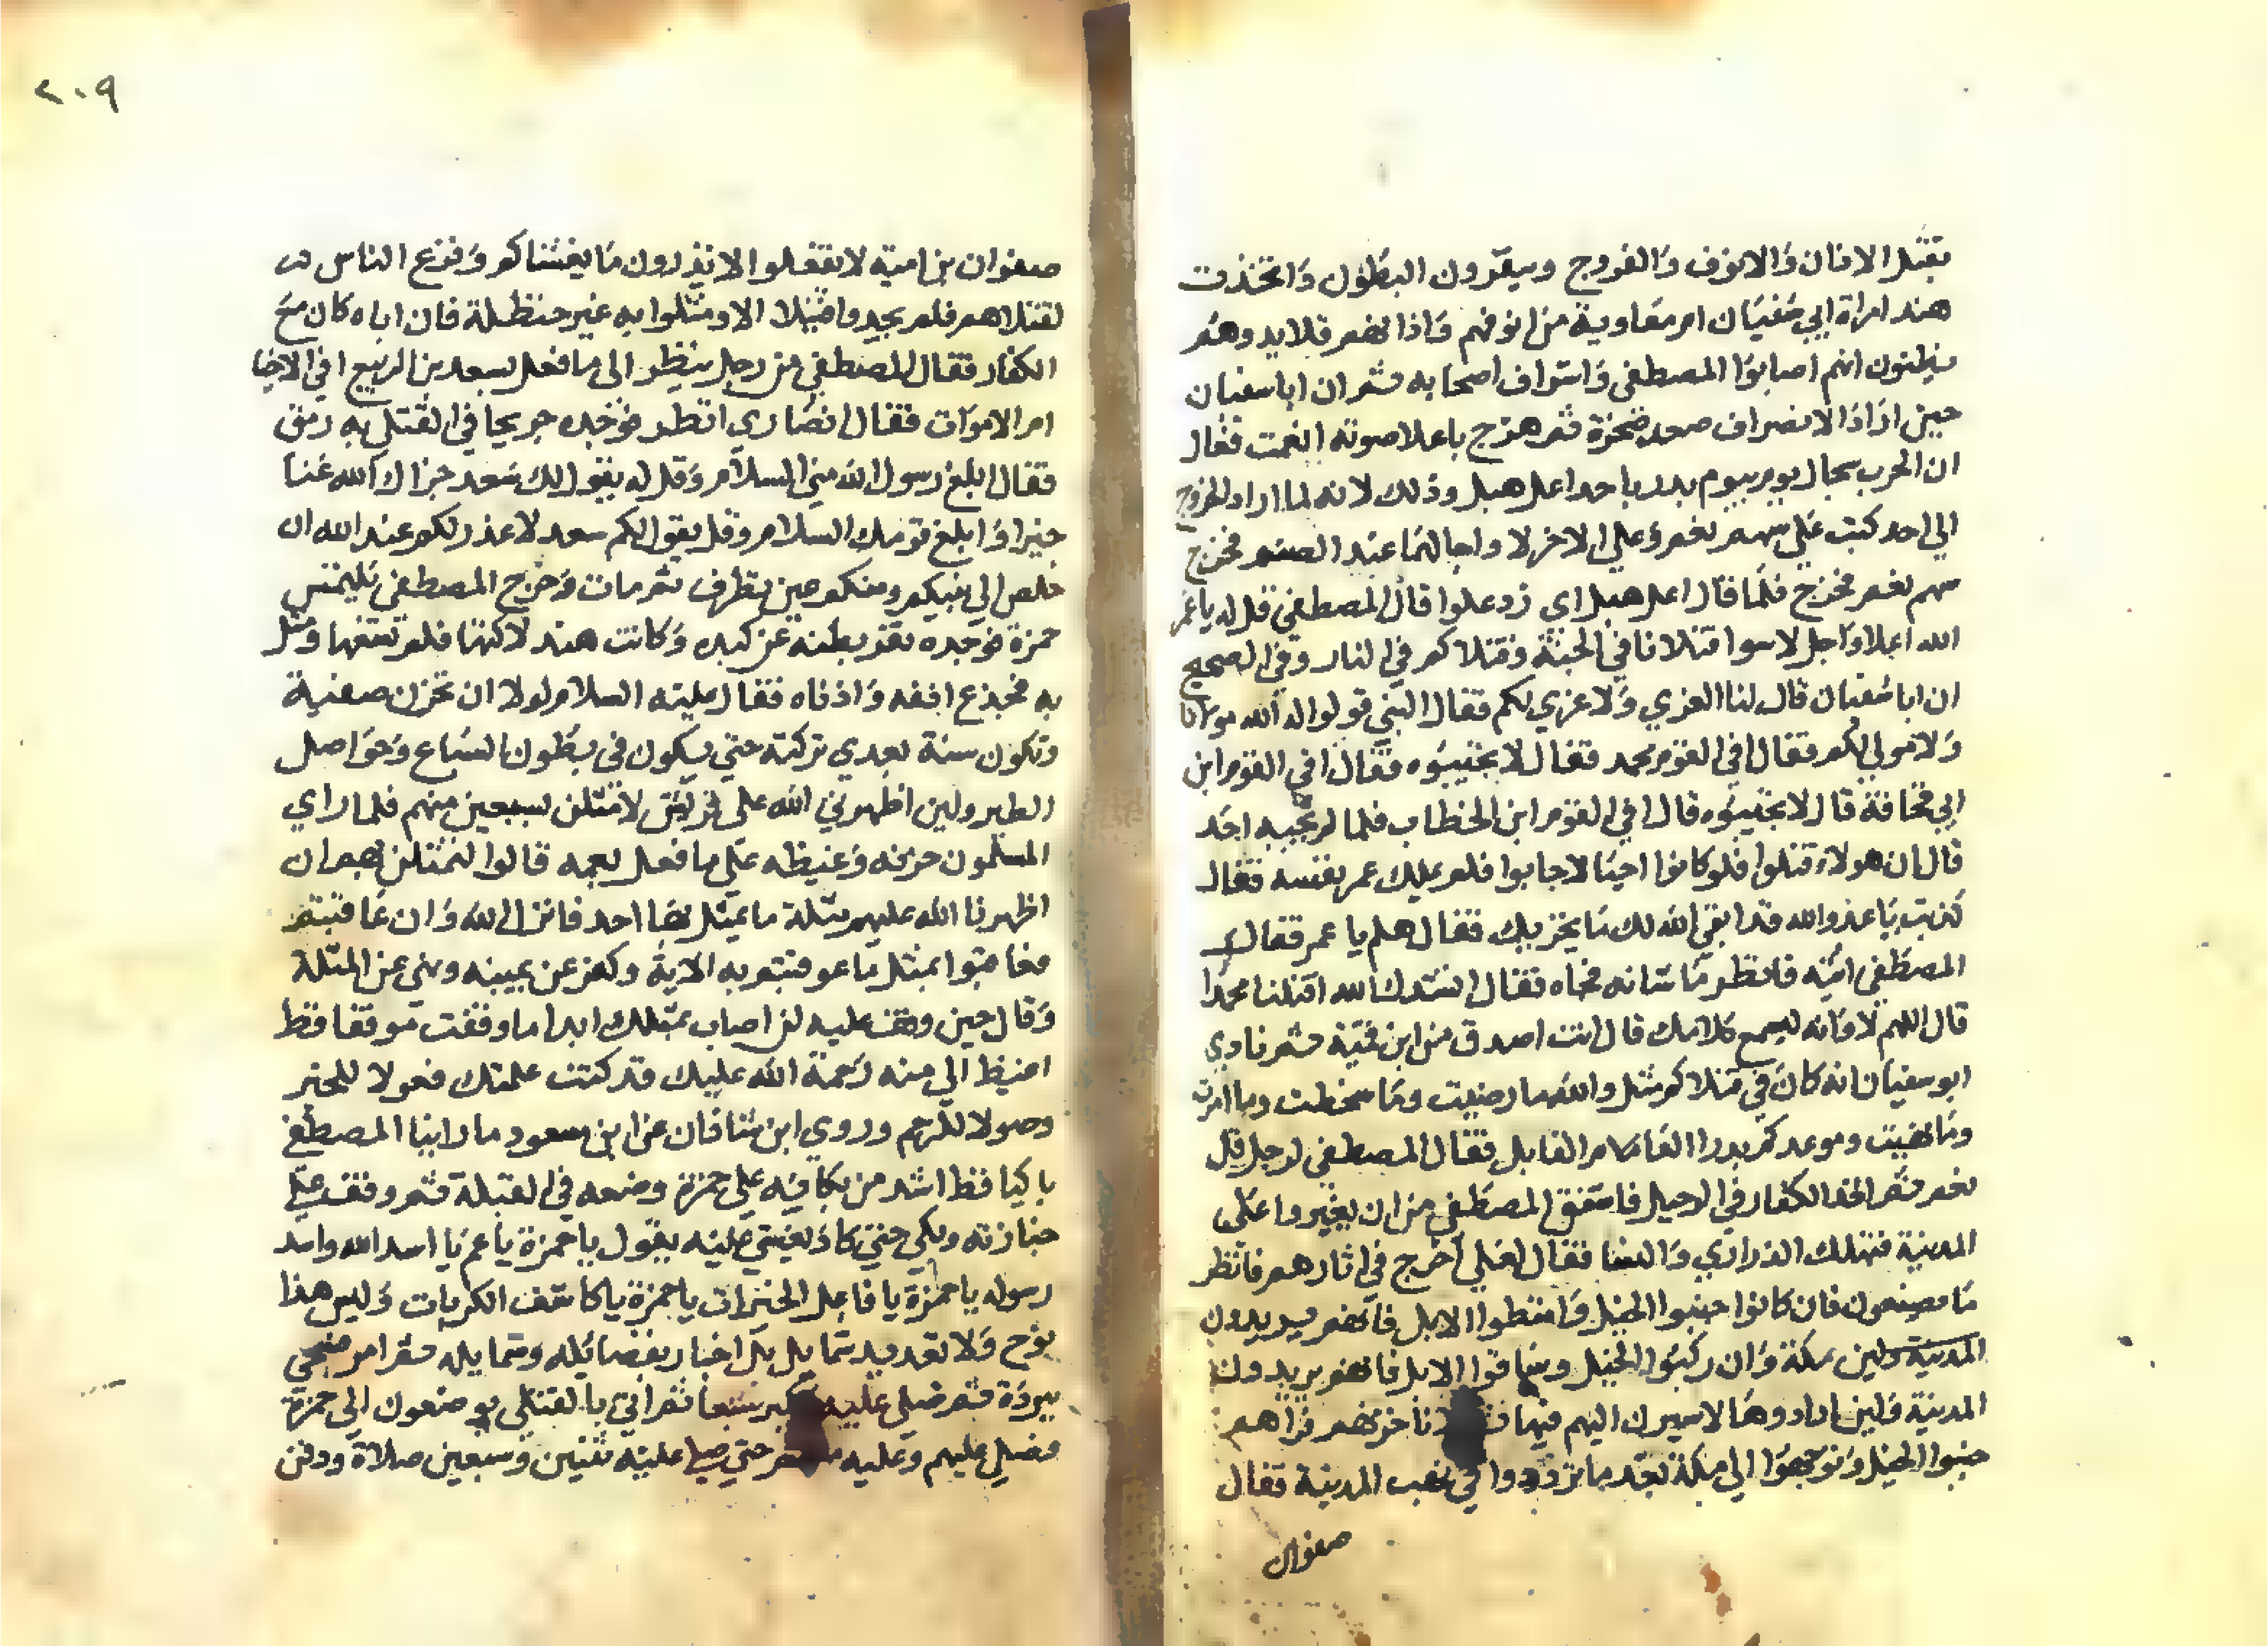 بقتل الاذان والانوف والفروج ويبقرون البطون واتخذت
هند امراة ابي سفيان ام معاوية من انوفهم واذانهم قلايد وهم
يظنون انهم اصابوا المصطفى واشراف اصحابه ثم ان ابا سفيان
حين اراد الانصراف صعد صخرة ثم صرخ باعلا صوته انعمت فقال
ان الحرب سجال يوم بيوم بدر باحد اعل هبل وذلك لانه لما اراد الخروج
الى احد كتب على سهم نعم وعلى الاخر لا واجالهما عند الصنم فخرج
سهم نعم فخرج فلما قال اعل هبل اى زد علوا قال المصطفى قل له يا عمر
الله اعلا واجل لا سوا قتلانا في الجنة وقتلاكم في النار وفي الصحيح
ان ابا سفيان قال لنا العزي ولا عزي لكم فقال النبي قولوا له الله مولانا
ولا مولى لكم فقال افي القوم محمد فقال لا تجيبوه فقال افي القوم ابن
ابي قحافة قال لا تجيبوه قال افي القوم ابن الخطاب فلما لم يجبه احد
قال ان هولاء قتلوا فلو كانوا احيا لاجابوا فلم يملك عمر نفسه فقال
كذبت يا عدو الله قد ابقى الله لك ما يخزيك فقال هلم يا عمر فقال
المصطفى ائته فانظر ما شانه فجاه فقال انشدك الله اقتلنا محمدا
قال اللهم لا وانه ليسمع كلامك قال انت اصدق من ابن قمية ثم نادي
ابو سفيان انه كان في قتلاكم مثل والله ما رضيت وما سخطت وما امرت
وما نهيت وموعدكم بدرا العام القابل فقال المصطفى لرجل قل
نعم ثم اخذ الكفار في الرحيل فاشفق المصطفى من ان يغيروا على
المدينة فتهلك الذراري والنسا فقال لعلي اخرج في اثارهم فانظر
ما يصنعون فان كانوا جنبوا الخيل وامتطوا الابل فانهم يريدون
مكة وان ركبوا الخيل وساقوا الابل فانهم يريدون
المدينة ولين ارادوها لاسيرن اليهم فيها ثم لاناجزنهم فراهم
جنبوا الخيل وتوجهوا الى مكة بعد ما ترددوا في نهب المدينة فقال
صفوان
٢٠٩
صفوان بن امية لا تفعلوا لا تدرون ما يغشاكم وفزع الناس
لقتلاهم فلم يجدوا قتيلا الا ومثلوا به غير حنظلة فان اباه كان مع
الكفار فقال المصطفى من رجل ينظر الى ما فعل بسعد بن الربيع افي الاحيا
ام الاموات فقال انصاري انا انظر فوجده جريحا في القتلى به رمق
فقال ابلغ رسول الله مني السلام وقل له يقول لك سعد جزاك الله عنا
خيرا وابلغ قومك السلام وقل يقول لكم سعد لا عذر لكم عند الله ان
خلص الى نبيكم ومنكم عين تطرف ثم مات وخرج المصطفى يلتمس
حمزة فوجده بقر بطنه عن كبده وكانت هند لاكتها فلم تسغها ومثل
به فجذع انفه واذناه فقال عليه السلام لولا ان تحزن صفية
وتكون سنة بعدي تركته حتى يكون في بطون السباع وحواصل
الطير ولين اظهرني الله على قريش لامثلن بسبعين منهم فلما راي
المسلمون حزنه وغيظه على ما فعل بعمه قالوا لنمثلن بهم ان
اظهرنا الله عليهم مثلة ما يمثل بها احد فانزل الله وان عاقبتم
فعاقبوا بمثل ما عوقبتم به الاية وكفر عن يمينه ونهى عن المثلة
وقال حين وقف عليه لن اصاب بمثلك ابدا ما وقفت موقفا قط
اغيظ الي منه رحمة الله عليك قد كنت علمتك فعولا للخير
وصولا للرحم وروي ابن شاذان عن ابن مسعود ما راينا المصطفى
باكيا قط اشد من بكائه على حمزة وضعه في القبلة ثم وقف على
جنازته وبكى حتى كاد يغشي عليه يقول يا حمزة يا عم يا اسد الله واسد
رسوله يا حمزة يا فاعل الخيرات يا حمزة يا كاشف الكربات وليس هذا
نوح ولا تعديد شمايل بل اخبار بفضائله وشمايله ثم امر فسجي
ببردة ثم صلى عليه فكبر سبعا ثم اتي بالقتلى يوضعون الى حمزة
فصلى عليهم وعليه معهم حتى صلى عليه ثنتين وسبعين صلاة ودفن